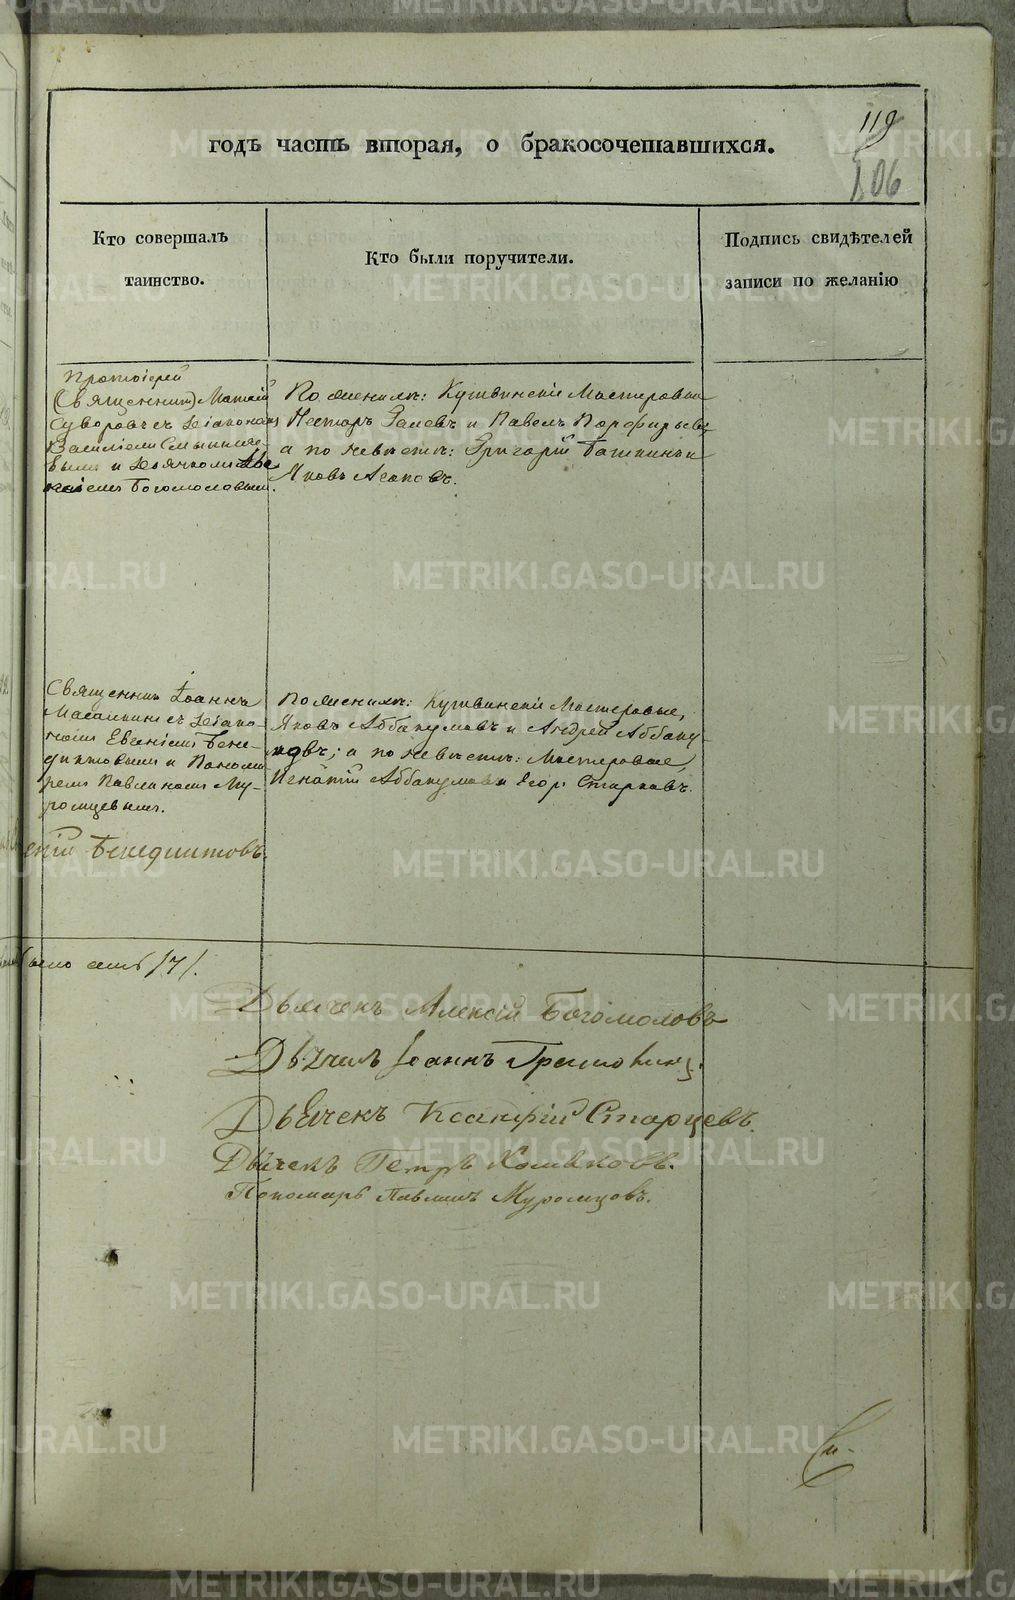 119
106
годъ часть вторая, о бракосочетавшихся.
Кто совершалъ
таинство.
Кто были поручители.
Подпись свидѣтелей
записи по желанію
Протоіерей
(Священникъ) Матѳій
Суворовъ съ діакономъ
Василіемъ
и дьячкомъ Але-
ксіемъ Богомоловымъ.
По женихѣ: Кушвинскіе Мастеровые
Несторъ и Павелъ Порфирьевъ,
а по невѣстѣ: Григорій Башкинъ и
Яковъ Агаповъ.
Священникъ Іоаннъ
съ діако-
номъ Евгеніемъ Бене-
диктовымъ и Понома-
ремъ Павлиномъ Му-
ромцевымъ.
По женихѣ: Кушвинскіе Мастеровые,
Яковъ Аббакумовъ и Андрей Аббаку-
мовъ; а по невѣстѣ: Мастеровые,
Игнатій Аббакумовъ и Егоръ Старковъ.
еній Бенедиктовъ.
было семь /7/.
Дьячекъ Алексій Богомоловъ
Дьячекъ Іоаннъ
Дьячекъ Ксанфій Старцевъ.
Дьячекъ Петръ
Пономарь Павлинъ Муромцовъ.
METRIKI.GASO-URAL.RU